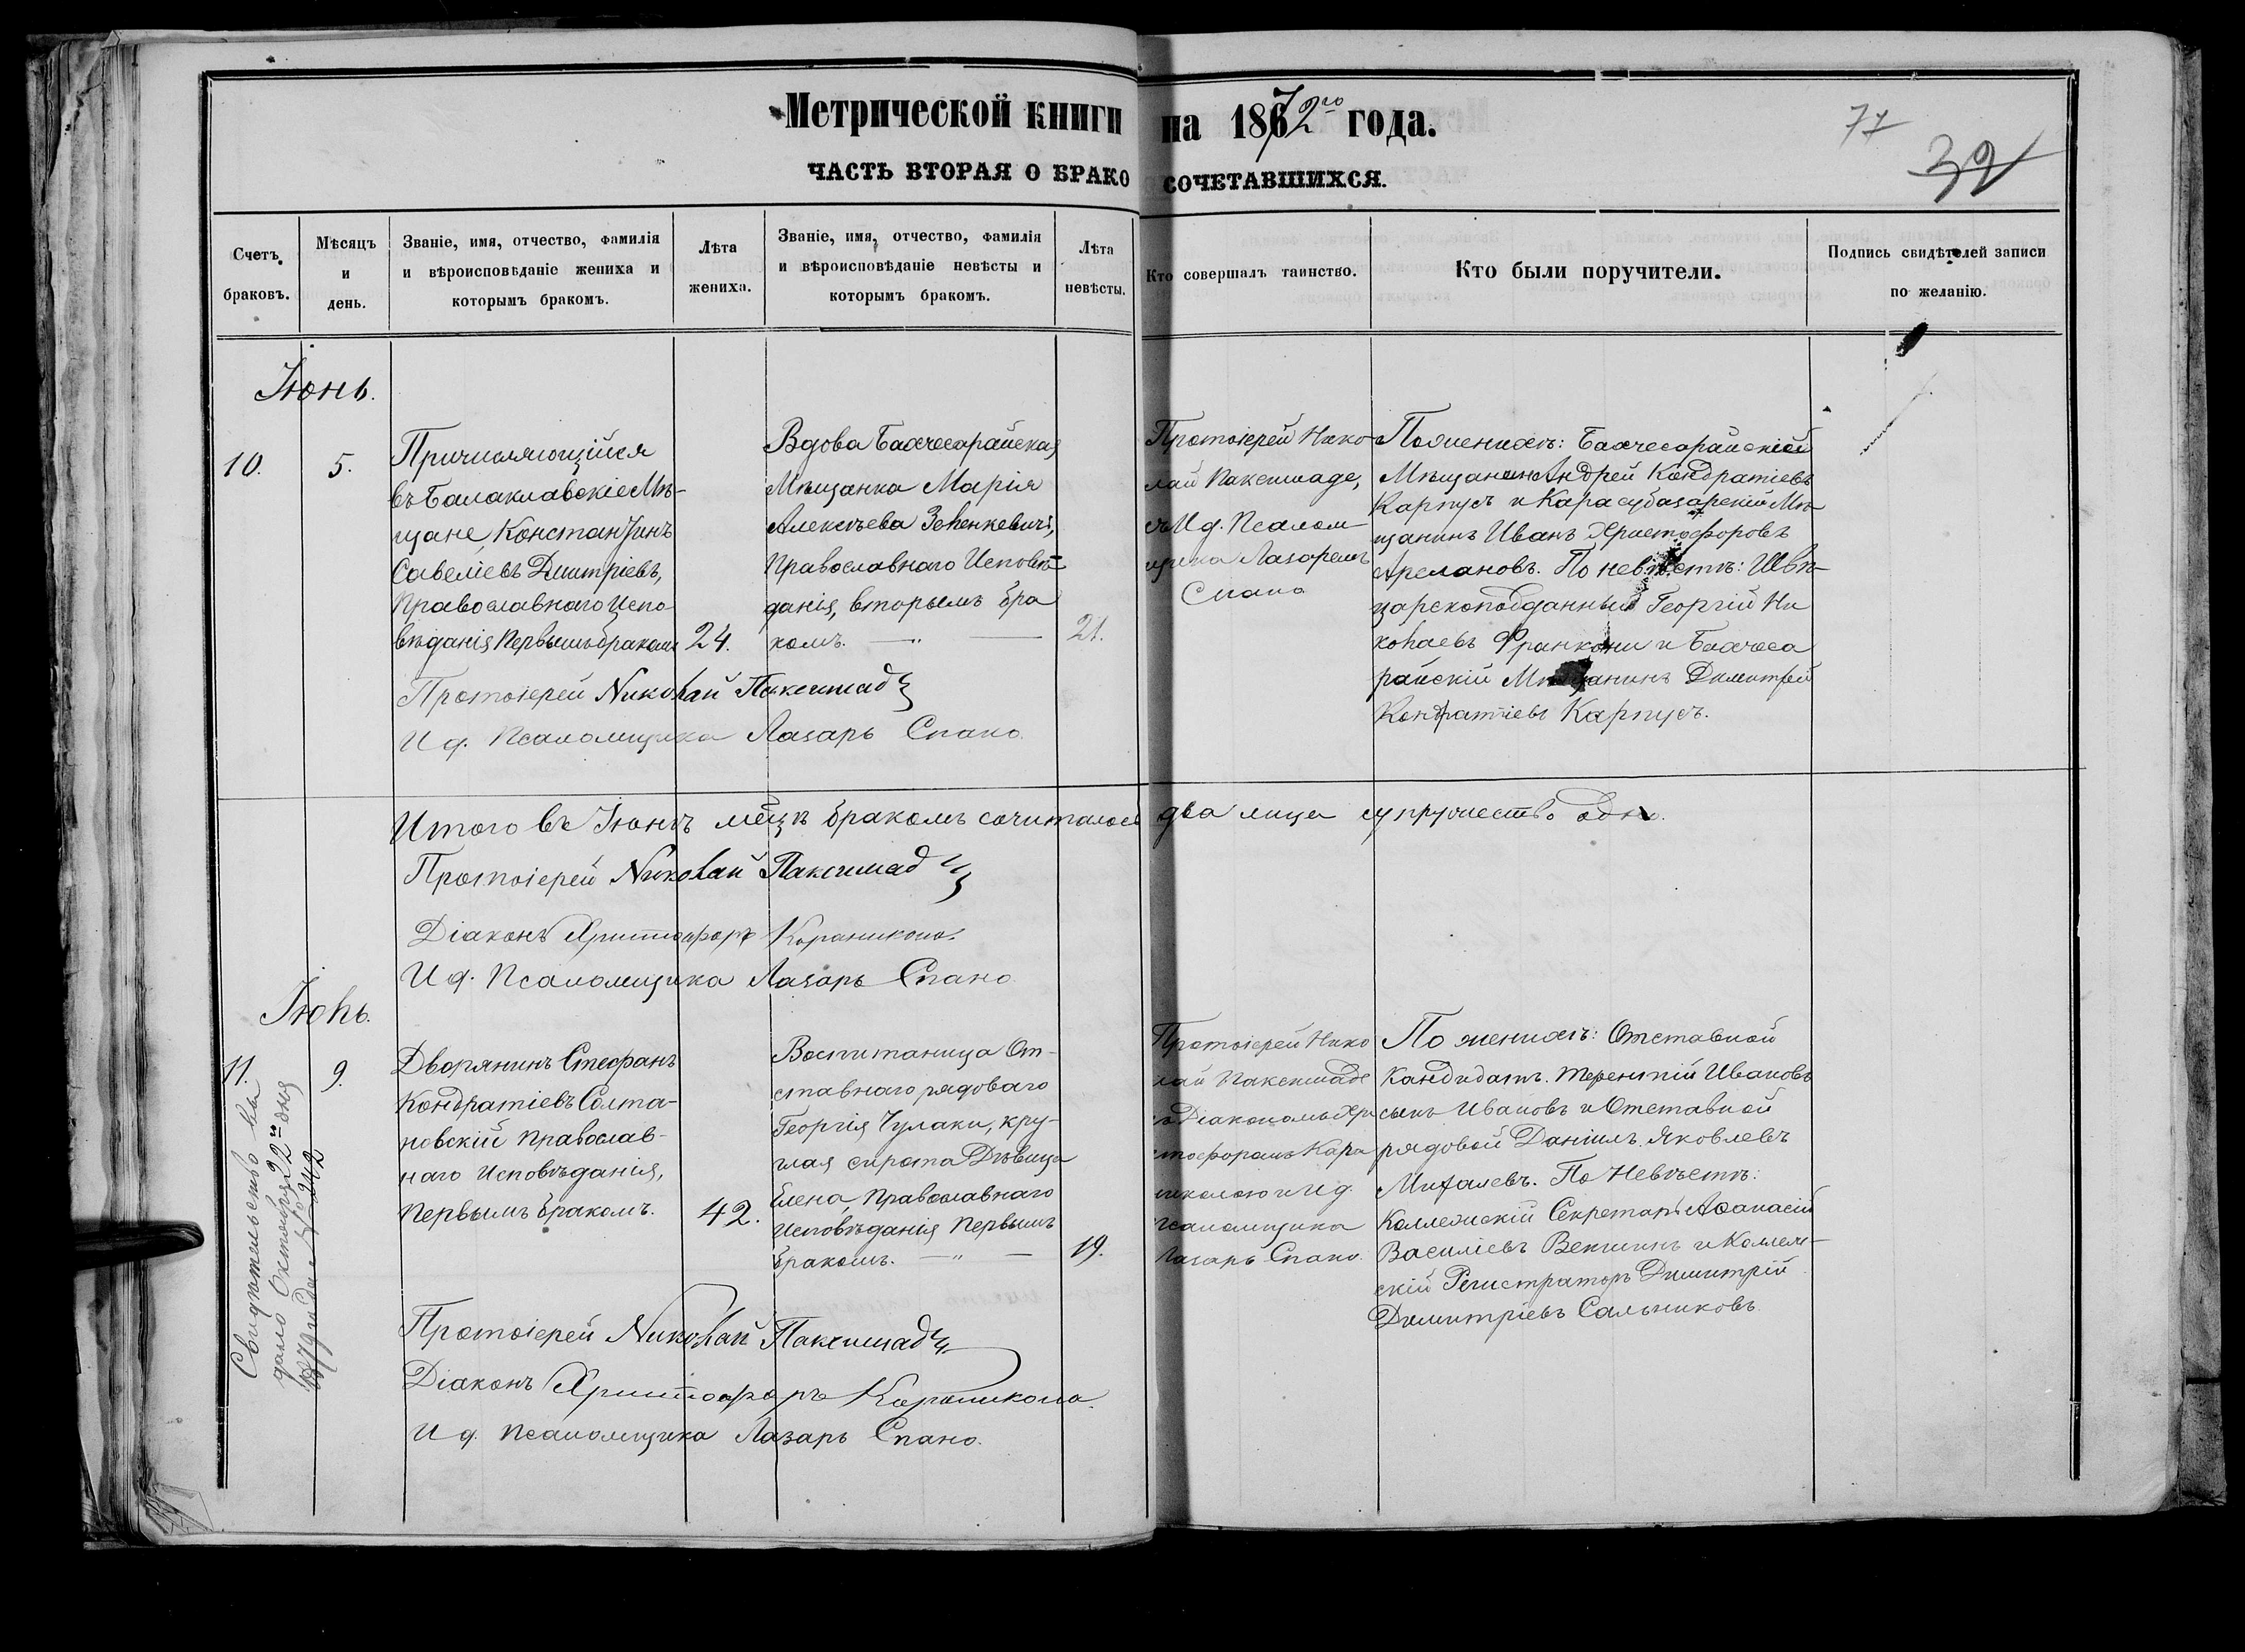 Метрической книги на 1872го года.
77
32
ЧАСТЬ ВТОРАЯ О БРАКОСОЧЕТАВШИХСЯ.
Счетъ браковъ.
Мѣсяцъ и день.
Званіе, имя, отчество, фамилія
и вѣроисповѣданіе жениха и
которымъ бракомъ.
Лѣта
жениха.
Званіе, имя, отчество, фамилія
и вѣроисповѣданіе невѣсты и
которымъ бракомъ.
Лѣта
невѣсты.
Кто совершалъ таинство.
Кто были поручители.
Подпись свидѣтелей записи
по желанію.
Іюнь.
10.
5.
Причисляющійся
въ Балаклавскіе Мѣ-
щане, Константинъ
Савеліевъ Дмитріевъ,
Православнаго Испо
вѣданія первымъ бракомъ
24.
Вдова Бахчесарайская
Мѣщанка Марія
Алексѣева Зенкевичъ,
Православнаго Исповѣ-
данія, вторымъ бра
комъ.
21.
Протоіерей Нико-
лай Паксимаде,
съ И д. Псалом-
щика Лазаремъ
Спано
По женихѣ: Бахчесарайскій
Мѣщанинъ Андрей Кондратіевъ
Карпусъ и Карасубазарскій Мѣ-
щанинъ Иванъ Христофоровъ
Арслановъ. По невѣстѣ: Швѣ-
царскоподданный Георгій Ни
колаевъ Франкони и Бахчеса
райскій Мѣщанинъ Димитрій
Кондратіевъ Карпусъ.
Протоіерей Николай Паксимад
И д. Псаломщика Лазарь Спано.
Итого въ Іюнѣ мѣцѣ бракомъ сочиталось два лица супружество одно.
Протоіерей Николай Паксимад
Діаконъ Христофоръ Караникола.
И д. Псаломщика Лазарь Спано
Іюль.
11.
9.
Дворянинъ Стефанъ
Кондратіевъ Солта-
новскій Православ-
наго Исповѣданія,
Первымъ бракомъ.
42.
Воспитаница От-
ставнаго рядоваго
Георгія Чулаки, кру-
глая сирота Дѣвица
Елена, Православнаго
Исповѣданія Первымъ
бракомъ.
19.
Протоіерей Нико
лай Паксимаде
съ Діакономъ Хри
стофоромъ Кара
николою и И д.
псаломщика
Лазарь Спано.
По женихѣ: Отставной
Кандидатъ Терентій Ивановъ
сынъ Ивановъ и Отставной
рядовой Даніилъ Яковлевъ
Михалевъ. По Невѣстѣ:
Коллежскій Секретарь Аѳанасій
Василіевъ Векшинъ и Коллеж-
скій Регистраторъ Димитрій
Димитріевъ Сальниковъ.
Свидѣтельство вы
дано Октября 22го дня
1879 года № 242
Протоіерей Николай Паксимад
Діаконъ Христофоръ Караникола.
И д. Псаломщика Лазарь Спано.